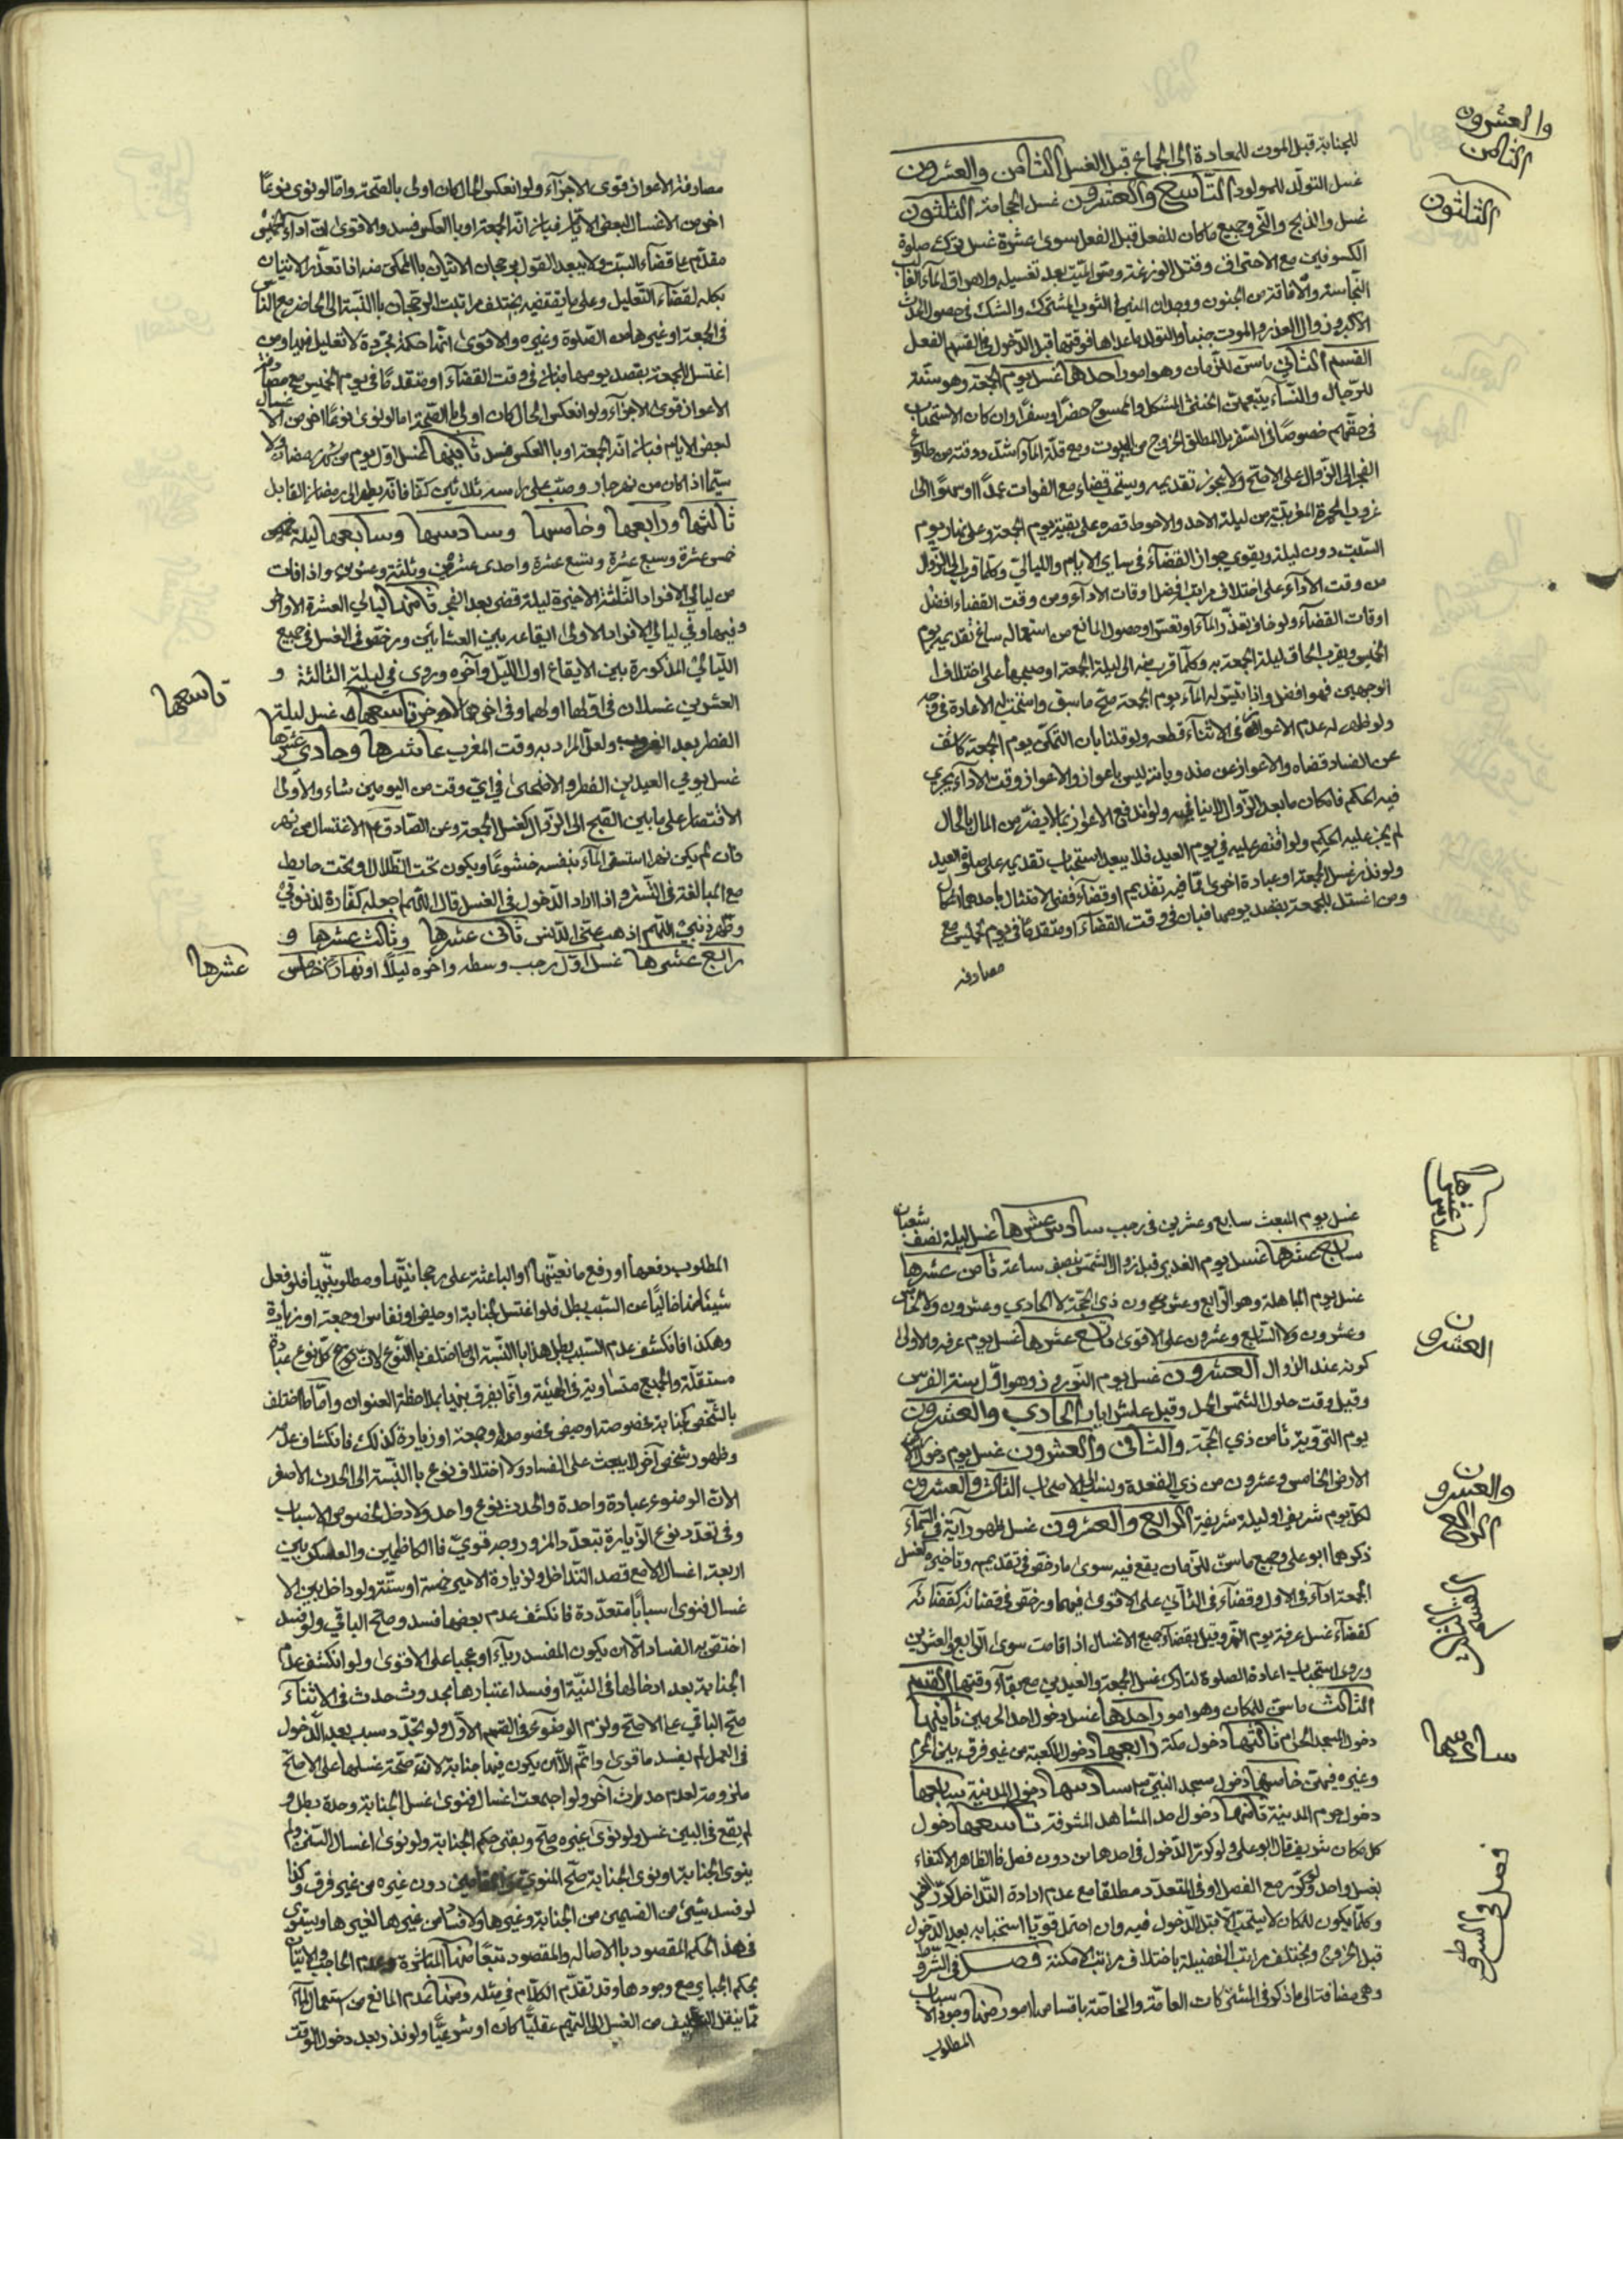 للجنابة قبل الموت للمعادة الى الجماع قبل الغسل الثامن والعشرون
والعشرون
الثامن
غسل التولد للمولود التاسع والعشرون غسل الحجامة الثلثون
الثلثون
غسل والذبح والنحر وجميع ماكان للفعل قبل الفعل سوى عشرة غسل ترك صلوة
الكسوفين مع الاحتراق وقتل الوزغة ومس الميت بعد تغسيله واهراق الماء الغالب
النجاسة والافاقة من الجنون ووجدان المني في الثوب المشترك والشك في حصول الحدث
الاكبر وزوال العذر والموت جنبا والتولد ماعداها فوقتها قبل الدخول في الفعل
القسم الثاني ماسن للزمان وهو امور احدها غسل يوم الجمعة وهو سنة
للرجال والنساء يتبعهن الخنثى المشكل والممسوح حضرا وسفرا وان كان الاستحباب
في حقهم خصوصا في السفر بل المطلق الخروج من البيوت ومع قلة الماء اشد ووقته من طلوع
الفجر الى الزوال على الاصح ولا يجوز تقديمه ويستحب قضاءه مع الفوات عمدا او سهوا الى
غروب الحمرة المغربية من ليلة الاحد والاحوط قصره على بقية يوم الجمعة وعلى نهار يوم
السبت دون ليلة ويقوى جواز القضاء في ساير الايام والليالي وكلما قرب الى الزوال
من وقت الاداء على اختلاف مراتبه افضل اوقات الاداء ومن وقت القضاء افضل
اوقات القضاء ولو خاف تعذر الماء او تعسر او حصول المانع من استعماله ساغ تقديمه يوم
الخميس ويقرب الحاق ليلة الجمعة به وكلما قرب منه الى ليلة الجمعة او صبحها على اختلاف
الوجهين فهو افضل واذا تيسر له الماء يوم الجمعة صح ما سبق واستحب له الاعادة في وقته
ولو ظهر له عدم الاعواز في الاثناء قطعه ولو قلنا بان التمكن يوم الجمعة كاشف
عن الفساد قضاه والاعواز عن ضده وبانه ليس باعواز والاعواز وقت الاداء يجري
فيه الحكم فامكان مابعد الزوال لاينافيه ولو اندفع الاعواز بما لايضر من المال بالحال
لم يجر عليه الحكم ولو اقتصر عليه في يوم العيد فلا يبعد استحباب تقديمه على صلوة العيد
ولو نذر غسل الجمعة او عبادة اخرى مما فيه تقديم او قضاء ففي الامتثال باحدهما اشكال
ومن اغتسل للجمعة بقصد يومها فبان في وقت القضاء او متقدما في يوم الخميس مع
مصادفة
مصادفة الاعواز قوى الاجزاء ولو انعكس الحال كان اولى بالصحة واما لو نوى نوعا
اخر من الاغسال لبعض الايام فبان انه الجمعة او بالعكس فسد والاقوى ان اداء الخميس
مقدم على قضاء السبت ولا يبعد القول برجحان الاتيان بالممكن منه اذا تعذر الاتيان
بكله لقضاء التعليل وعلى مايقتضيه يختلف مراتب الرجحان بالنسبة الى الحاضر مع الناس
في الجمعة او غيرها من الصلوة وغيره والاقوى انما حكمة مجردة لا تعليل فيها ومن
اغتسل للجمعة بقصد يومها فبان في وقت القضاء او متقدما في يوم الخميس مع مصادفة
الاعواز قوى الاجزاء ولو انعكس الحال كان اولى بالصحة اما لو نوى نوعا اخر من الاغسال
لبعض الايام فبان انه الجمعة او بالعكس فسد ثانيها غسل اول يوم من شهر رمضان ولا
سيما اذا كان من نهر جار وصب على راسه ثلاثين كفا فانه يطهر الى رمضان القابل
ثالثها ورابعها وخامسها وسادسها وسابعها ليلة
خمس عشرة وسبع عشرة وتسع عشرة واحدى عشرين وثلثة وعشرين واذا فات
من ليالي الافراد الثلثة الاخيرة ليلة قضى بعد الفجر ثامنها ليالي العشرة الاواخر
وفيها وفي ليالي الافراد الاولى ايقاعه بين العشائين ورخص في الغسل في جميع
الليالي المذكورة بين الايقاع اول الليل وآخره وروى في ليلة الثالثة و
العشرين غسلان في اولها اولهما وفي اخرها الاخر تاسعها غسل ليلة
تاسعها
الفطر بعد الغروب ولعل المراد به وقت المغرب عاشرها وحادي عشرها
غسل يومي العيدين الفطر والاضحى في اي وقت من اليومين شاء والاولى
الاقتصار على مابين الصبح الى الزوال كغسل الجمعة وعن الصادق ع الاغتسال من نهر
فان لم يكن نهر استسقى الماء بنفسه خشوعا ويكون تحت الظلال او تحت حايط
مع المبالغة في التستر واذا اراد الدخول في الغسل قال اللهم اجعله كفارة لذنوبي
وطهر ذنبي اللهم اذهب عني الدنس ثاني عشرها وثالث عشرها و
رابع عشرها غسل اول رجب وسطه واخره ليلا او نهارا خامس
عشرها
غسل يوم المبعث سابع وعشرين في رجب سادس عشرها غسل ليلة نصف شعبان
سادس عشرها
سابع عشرها غسل يوم الغدير قبل زوال الشمس بنصف ساعة ثامن عشرها
غسل يوم المباهلة وهو الرابع وعشرون ذي الحجة لا الحادي وعشرون ولا الخامس
وعشرون ولا السابع وعشرون على الاقوى تاسع عشرها غسل يوم عرفه والاولى
كونه عند الزوال العشرون غسل يوم النوروز وهو اول سنة الفرس
العشرون
وقيل وقت حلول الشمس الحمل وقيل عاشر اياب الحادي والعشرون
يوم التروية ثامن ذي الحجة والثاني والعشرون غسل يوم دحو
الارض الخامس وعشرون من ذي القعدة ونسب الى الاصحاب الثالث والعشرون
لكل يوم شريف او ليلة شريفة الرابع والعشرون غسل ظهور آية في السماء
والعشرون
الرابع
ذكرهما ابو علي وجميع ماسن للزمان يقع فيه سوى مارخص في تقديمه وتاخيره كغسل
الجمعة اداء في الاول وقضاء في الثاني على الاقوى فيهما ورخص في قضائه
كقضاء غسل عرفة يوم النحر وقيل بقضاء جميع الاغسال اذا فاتت سوى الرابع والعشرين
وروى استحباب اعادة الصلوة لتارك غسل الجمعة والعيدين مع بقاء وقتها القسم
القسم الثالث
الثالث ماسن للمكان وهو امور احدها غسل دخول احد الحرمين ثانيها
دخول المسجد الحرام ثالثها دخول مكة رابعها دخول الكعبة من غير فرق بين المحرم
وغيره فيهن خامسها دخول مسجد النبي ص سادسها دخول المدينة سابعها
سادسها
دخول حرم المدينة ثامنها دخول احد المشاهد المشرفة تاسعها دخول
كل مكان شريف قال ابو علي ولو كرر الدخول في احدها من دون فصل فالظاهر الاكتفاء
بغسل واحد ولو كرر مع الفصل او في المتعدد مطلقا مع عدم ارادة التداخل كرر الغسل
وكلما يكون للمكان لايستحب الا قبل الدخول فيه وان احتمل قويا استحبابه بعد الدخول
قبل الخروج ويختلف مراتب الفضيلة باختلاف مراتب الامكنة فصل في الشروط
فصل في الشروط
وهي مضافة الى ماذكر في المشتركات العامة والخاصة باقسامها امور منها وجود الاسباب
المطلوب
المطلوب دفعها او رفع مانعيتها او الباعثة على رجحانيتها ومطلوبيتها فلو فعل
شيئا منها خاليا عن السبب بطل فلو اغتسل لجنابة او حيض او نفاس او جمعة او زيارة
وهكذا فانكشف عدم السبب بطل هذا بالنسبة الى ما اختلف بالنوع لان كل نوع عبادة
مستقلة والجميع متساوية في الهيئة وانما يفرق بينها بملاحظة العنوان واما ما اختلف
بالشخص كجنابة مخصوصة او حيض مخصوص او جمعة او زيارة كذلك فانكشاف عدمه
وظهور شخص آخر لا يبعث على الفساد ولا اختلاف نوع بالنسبة الى الحدث الاصغر
لان الوضوء عبادة واحدة والحدث نوع واحد ولا دخل لخصوص الاسباب
وفي تعدد نوع الزيارة بتعدد المزور وجه قوي فللكاظمين والعسكريين
اربعة اغسال لامع قصد التداخل ولزيارة الامير خمسة او ستة ولو داخل بين الا
غسال فنوى اسبابا متعددة فانكشف عدم بعضها فسد وصح الباقي ولو فسد
اختص به الفساد الا ان يكون المفسد رياء او عجبا على الاقوى ولو انكشف عدم
الجنابة بعد ادخالها في النية او فسد اعتبارها بحدوث حدث في الاثناء
صح الباقي على الاصح ولزم الوضوء في القسم الاول ولو تجدد سبب بعد الدخول
في العمل لم يفسد مانوى واتم الا ان يكون فيها جنابة لان صحة غسلها على الاصح
ملزومة لعدم حدث آخر ولو اجتمعت اغسال فنوى غسل الجنابة وحده بطل و
لم يقع في البين غسل ولو نوى غيره صح وبقي حكم الجنابة ولو نوى اغسال السنن ولم
ينوى الجنابة او نوى الجنابة صح المنوى دون غيره من غير فرق وكذا
لو فسد شيئ من القسمين من الجنابة وغيرها ولا فساد من غيرها لغيرها ويستوى
في هذا الحكم المقصود بالاصاله والمقصود تبعا منها المباشرة وعدم الحاجب والاتيان
بحكم الجباير مع وجودها وقد تقدم الكلام في مثله ومنها عدم المانع من استعمال الماء
مما ينقل التكليف من الغسل الى التيمم عقليا كان او شرعيا ولو نذر بعد دخول الوقت